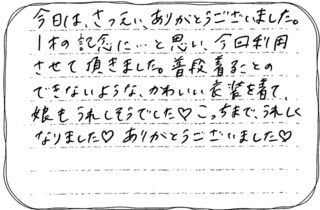 今日は、さつえい、ありがとうございました。
1才の記念に…と思い、今回利用
させて頂きました。普段着ることの
できないような、かわいい衣装を着て、
娘もうれしそうでした♡こっちまで、うれしく
なりました♡ ありがとうございました♡